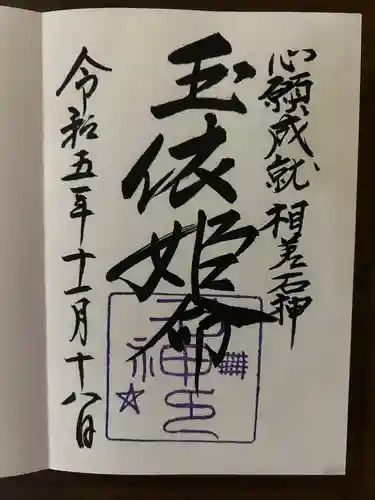 心願成就 相差石神
玉依姫命
令和五年十一月十八日
石神之印